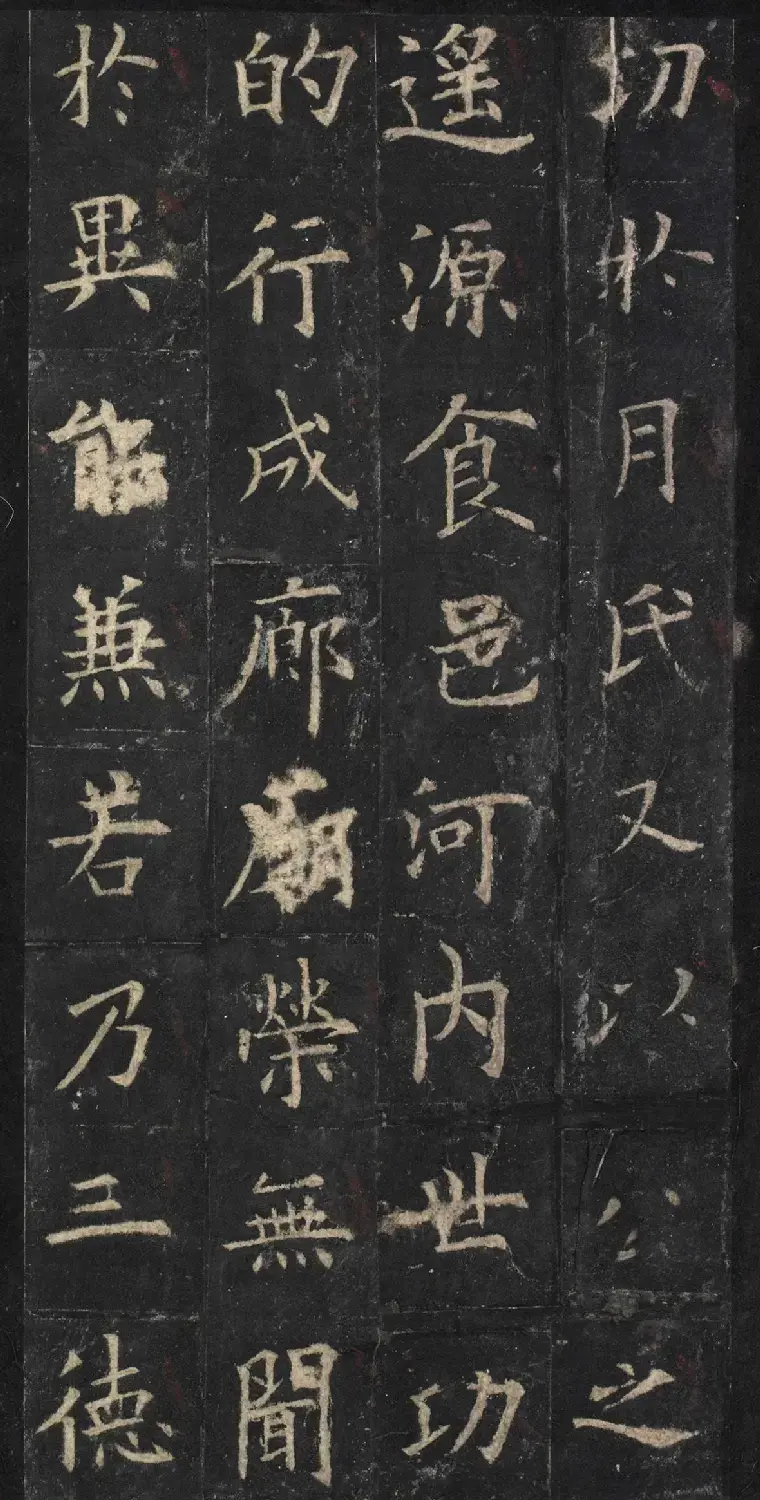 切於月氏又以公之
遥源食邑河内世功
的行成廊廟榮無聞
於異能兼若乃三德